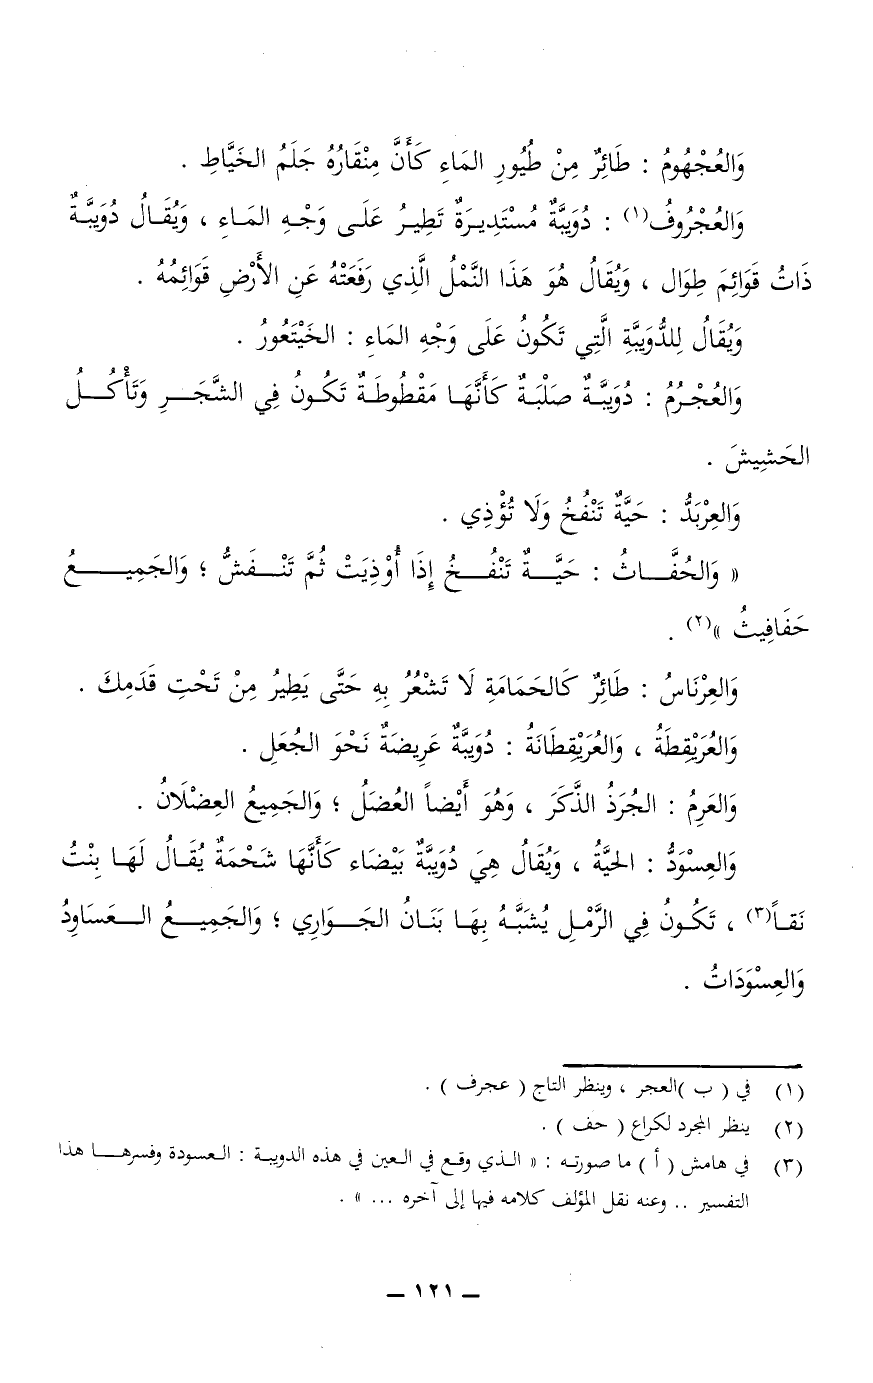 وَالعُجْهُومُ : طَائِرٌ مِنْ طُيُورِ المَاءِ كَأَنَّ مِنْقَارُهُ جَلَمُ الخَيَّاطِ .
وَالعُجْرُوفُ(١) : دُوَيبَّةٌ مُسْتَدِيرَةٌ تَطِيرُ عَلَى وَجْهِ المَاءِ ، وَيُقَالُ دُوَيبَّةٌ
ذَاتُ قَوَائِمَ طِوَال ، وَيُقَالُ هُوَ هَذَا النَّمْلُ الَّذِي رَفَعَتْهُ عَنِ الأَرْضِ قَوَائِمُهُ .
وَيُقَالُ لِلدُّوَيبَّةِ الَّتِي تَكُونُ عَلَى وَجْهِ المَاءِ : الخَيْتَعُورُ .
وَالعُجْرُمُ : دُوَيبَّةٌ صَلبَةٌ كَأَنَّهَا مَقْطُوطَةٌ تَكُونُ فِي الشَّجَرِ وَتَأْكُلُ
الحَشِيشَ .
وَالعِرْبَدُّ : حَيَّةٌ تَنْفُخُ وَلَا تُؤْذِي .
« وَالحُفَّاثُ : حَيَّةٌ تَنْفُخُ إِذَا أُوْذِيَتْ ثُمَّ تَنْفَشُّ ؛ وَالجَمِيعُ
حَفَافِيثُ »(٢) .
وَالعِرْنَاسُ : طَائِرٌ كَالحَمَامَةِ لَا تَشْعُرُ بِهِ حَتَّى يَطِيرُ مِنْ تَحْتِ قَدَمِكَ .
وَالعُرَيْقِطَةُ ، وَالعُرَيْقِطَانَةُ : دُوَيبَّةٌ عَرِيضَةٌ نَحْوَ الجُعَلِ .
وَالعَرِمُ : الجُرَذُ الذَّكَرَ ، وَهُوَ أَيْضاً العُضَلُ ؛ وَالجَمِيعُ العِضْلَانُ .
وَالعِسْوَدُّ : الحَيَّةُ ، وَيُقَالُ هِيَ دُوَيبَّةٌ بَيْضَاء كَأَنَّهَا شَحْمَةٌ يُقَالُ لَهَا بِنْتُ
نَقاً(٣) ، تَكُونُ فِي الرَّمْلِ يُشَبَّهُ بِهَا بَنَانُ الجَوَارِي ؛ وَالجَمِيعُ العَسَاوِدُ
وَالعِسْوَدَاتُ .
(١) في ( ب )العجر ، وينظر التاج ( عجرف ) .
(٢) ينظر المجرد لكراع ( حف ) .
(٣) في هامش ( أ ) ما صورته : « الذي وقع في العين في هذه الدويبة : العسودة وفسرها هذا
التفسير .. وعنه نقل المؤلف كلامه فيها إلى آخره ... » .
ـ ١٢١ ـ